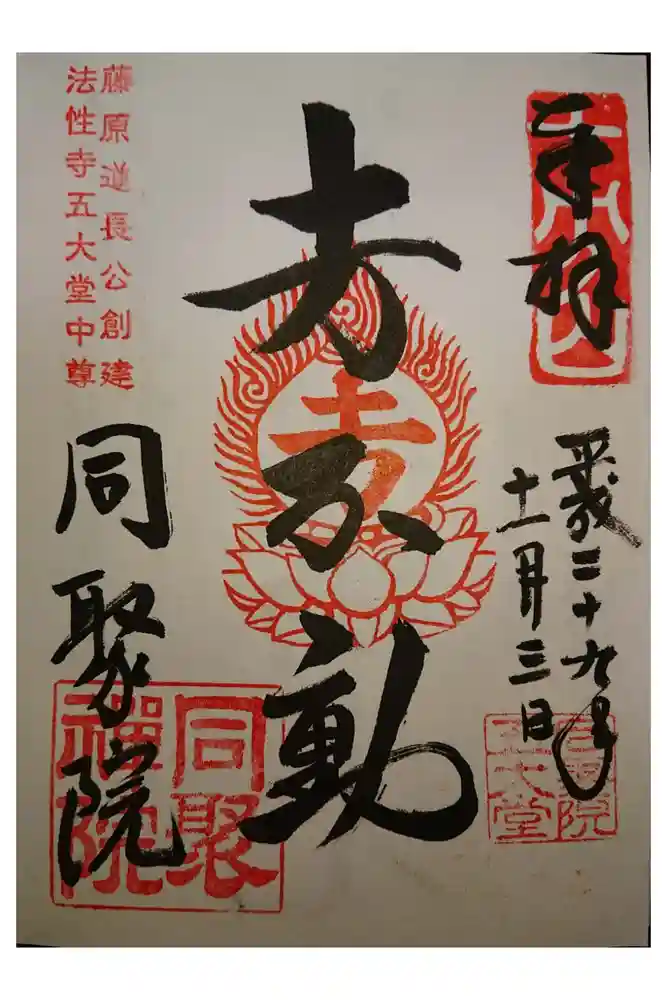 奉拝
平成二十九年
十一月三日
同聚院
五大堂
十万不動
藤原道長公創建
法性寺五大堂中尊
同聚院
同聚
禪院